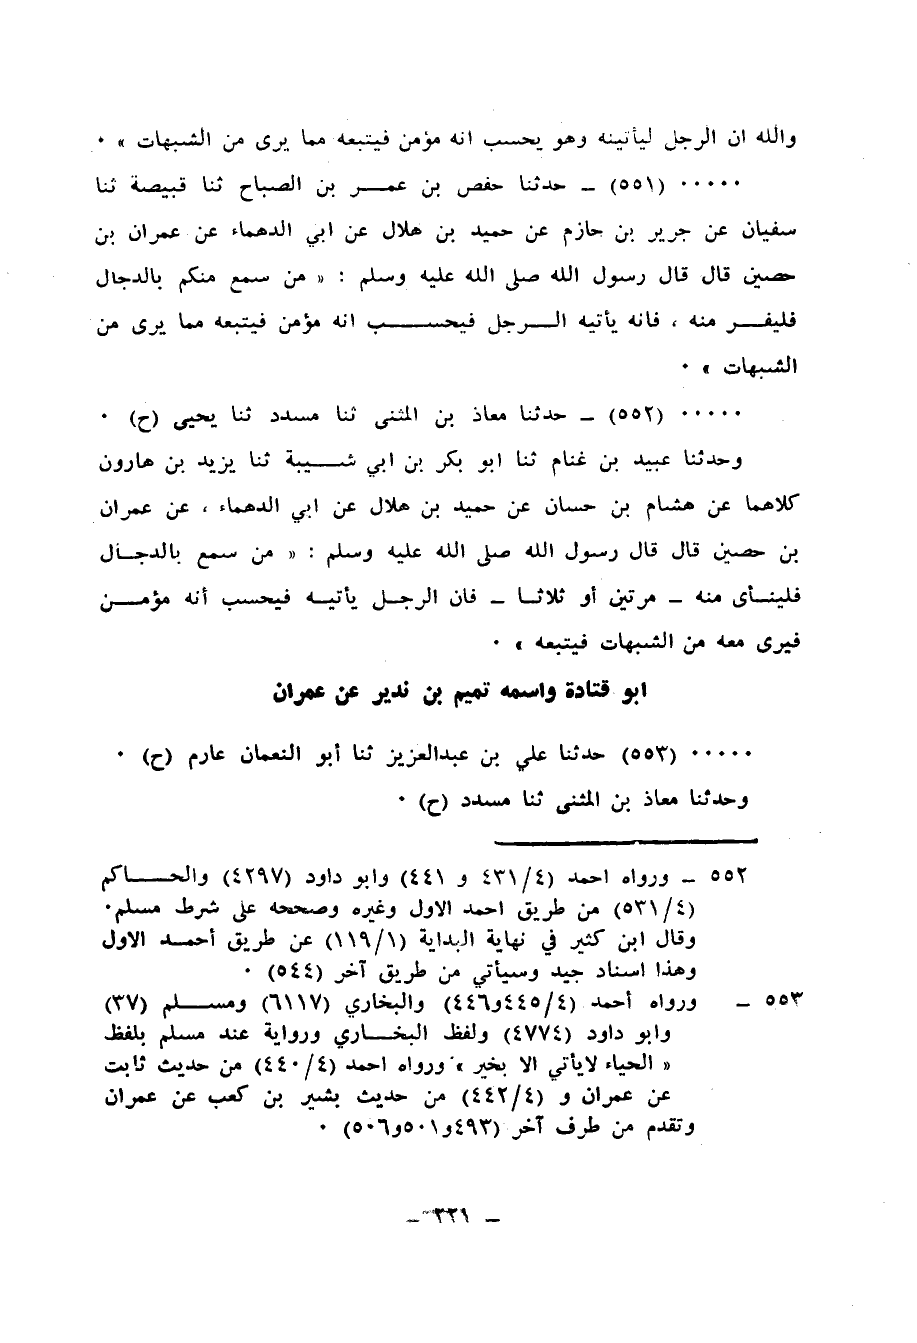 والله ان الرجل ليأتينه وهو يحسب انه مؤمن فيتبعه مما يرى من الشبهات » ٠
٠٠٠٠٠ (٥٥١) ــ حدثنا حفص بن عمر بن الصباح ثنا قبيصة ثنا
سفيان عن جرير بن حازم عن حميد بن هلال عن ابي الدهماء عن عمران بن
حصين قال قال رسول الله صلى الله عليه وسلم : « من سمع منكم بالدجال
فليفر منه ، فانه يأتيه الرجل فيحسب انه مؤمن فيتبعه مما يرى من
الشبهات » ٠
٠٠٠٠٠ (٥٥٢) ــ حدثنا معاذ بن المثنى ثنا مسدد ثنا يحيى (ح) ٠
وحدثنا عبيد بن غنام ثنا ابو بكر بن ابي شيبة ثنا يزيد بن هارون
كلاهما عن هشام بن حسان عن حميد بن هلال عن ابي الدهماء ، عن عمران
بن حصين قال قال رسول الله صلى الله عليه وسلم : « من سمع بالدجال
فلينأى منه ــ مرتين أو ثلاثا ــ فان الرجل يأتيه فيحسب أنه مؤمن
فيرى معه من الشبهات فيتبعه » ٠
ابو قتادة واسمه تميم بن نذير عن عمران
٠٠٠٠٠ (٥٥٣) حدثنا علي بن عبدالعزيز ثنا أبو النعمان عارم (ح) ٠
وحدثنا معاذ بن المثنى ثنا مسدد (ح) ٠
٥٥٢ ــ ورواه احمد (٤/٤٣١ و ٤٤١) وابو داود (٤٢٩٧) والحاكم
(٤/٥٣١) من طريق احمد الاول وغيره وصححه على شرط مسلم٠
وقال ابن كثير في نهاية البداية (١/١١٩) عن طريق أحمد الاول
وهذا اسناد جيد وسيأتي من طريق آخر (٥٤٤) ٠
٥٥٣ ــ ورواه أحمد (٤/٤٤٥و٤٤٦) والبخاري (٦١١٧) ومسلم (٣٧)
وابو داود (٤٧٧٤) ولفظ البخاري ورواية عند مسلم بلفظ
« الحياء لايأتي الا بخير » ورواه احمد (٤/٤٤٠) من حديث ثابت
عن عمران و (٤/٤٤٢) من حديث بشير بن كعب عن عمران
وتقدم من طرف آخر (٤٩٣و٥٠١و٥٠٦) ٠
ــ ٢٢١ ــ